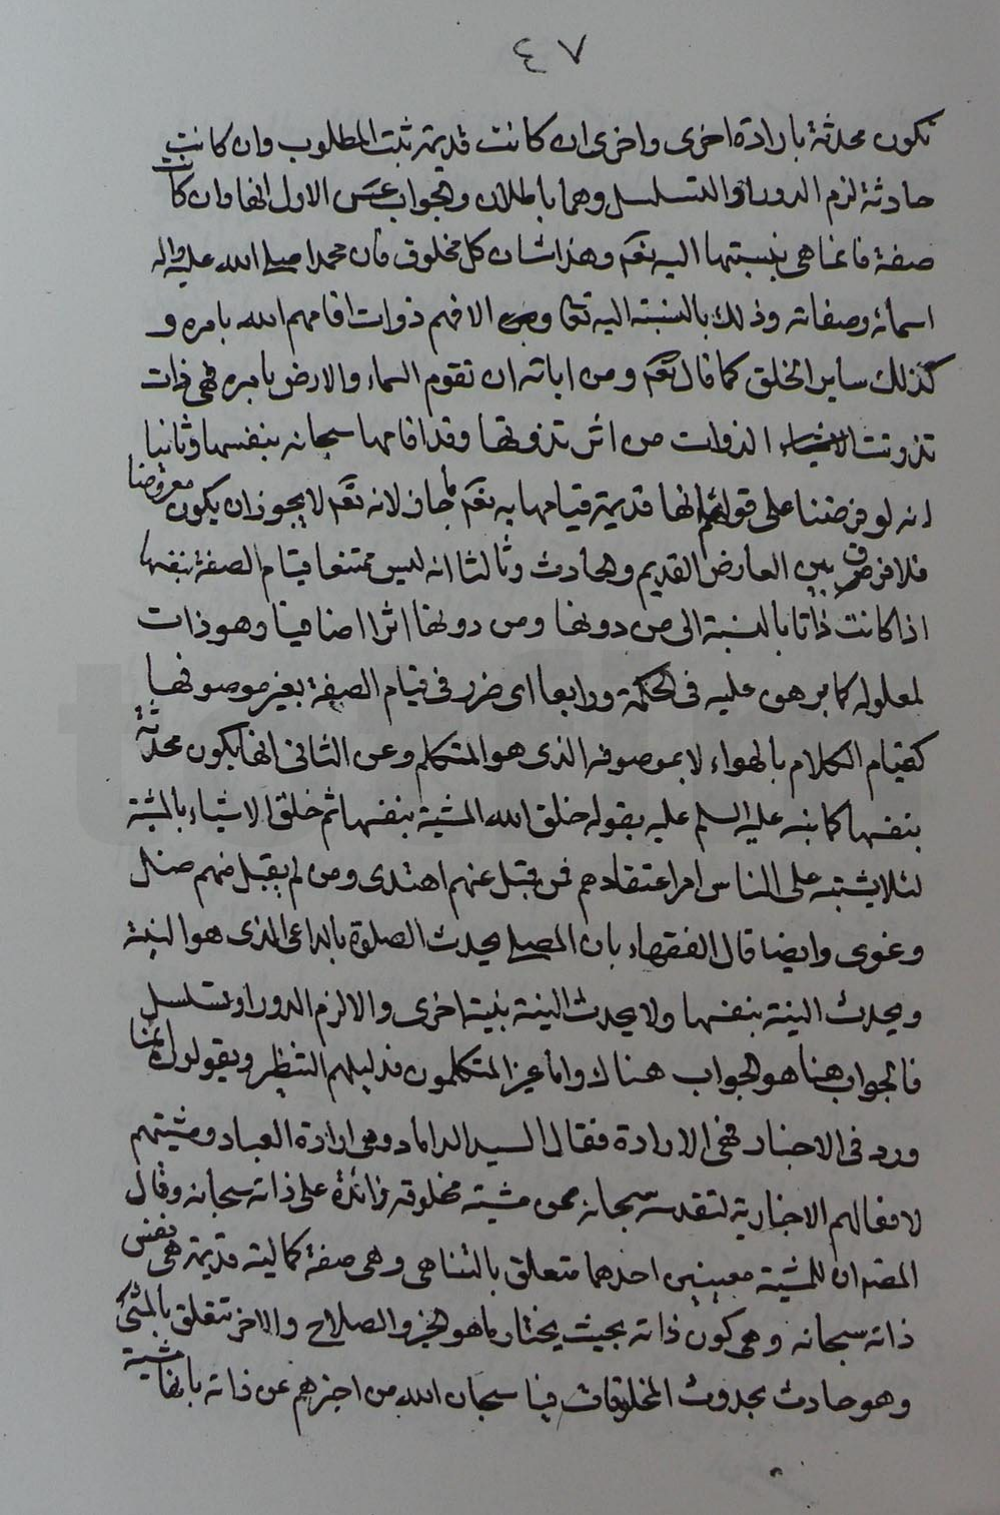 ٤٧
تكون محدثة بارادة اخرى واخرى ان كانت قديمة ثبت المطلوب وان كانت
حادثة لزم الدور او التسلسل وهما باطلان والجواب عن الاول انها وان كانت
صفة فانما هى بنسبتها اليه تعم وهذا شان كل مخلوق فان محمدا صلى الله عليه واله
اسمائه وصفاته وذلك بالنسبة اليه تعالى والا فهم ذوات اقامهم الله بامره و
كذلك ساير الخلق كما قال تعم ومن اياته ان تقوم السماء والارض بامره فهى ذات
تذوتت الذوات من اثر تذوتها وقد اقامها سبحانه بنفسها وثانيا
انه لو فرضنا على قولهم انها قديمة قيامها به تعم لما جاز لانه تعم لا يجوز ان يكون معروضا
فلا فرق بين العارض القديم والحادث وثالثا انه ليس ممتنعا قيام الصفة بنفسها
اذا كانت ذاتا بالنسبة الى من دونها ومن دونها اثرا اضافيا وهو ذات
لمعلوله كما برهن عليه فى الحكمة ورابعا اى ضرر فى قيام الصفة بغير موصوفها
كقيام الكلام بالهواء لا بموصوفه الذى هو المتكلم وعن الثانى انها يكون محدثة
بنفسها كما نبه عليه السلم عليه بقوله خلق الله المشية بنفسها ثم خلق الاشياء بالمشية
لئلا يشتبه على الناس امر اعتقادهم فمن قبل عنهم اهتدى ومن لم يقبل منهم ضل
وغوى وايضا قال الفقهاء بان المصلى يحدث الصلوة بالداعى الذى هو النية
ويحدث النية بنفسها ولا يحدث النية بنية اخرى والا لزم الدور او تسلسل
فالجواب هنا هو الجواب هناك واما غير المتكلمون فدليلهم التنظر ويقولون انما
ورد فى الاخبار فى الارادة فقال السيد الداماد وهى ارادة العباد ومشيتهم
لافعالهم الاختيارية لتقدسه سبحانه عن مشية مخلوقة زائدة على ذاته سبحانه وقال
ان للمشية معنيين احدهما متعلق بالشائى وهى صفة كمالية قديمة هى نفس
ذاته سبحانه وهى كون ذاته بحيث يختار ما هو الخير والصلاح والاخر تتعلق بالمشئ
وهو حادث بحدوث المخلوقات فيا سبحان الله من اخبرهم عن ذاته بانها مشية